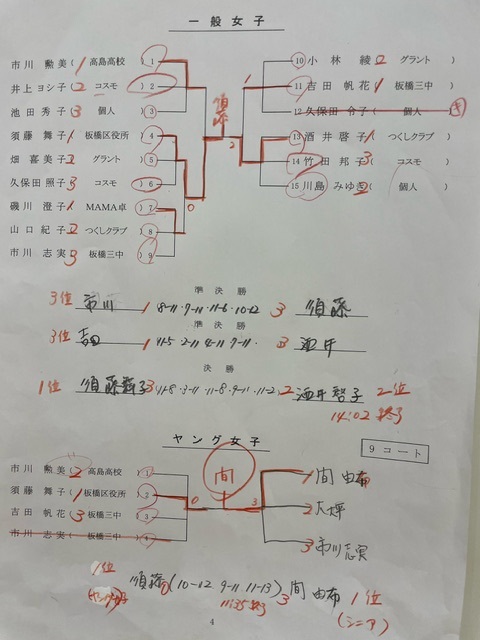 一般女子
市川 勲美 1 高島高校 ) 1
井上 ヨシ子 2 コスモ ) 2
池田 秀子 3 個人 ) 3
須藤 舞子 1 板橋区役所 ) 4
畑 喜美子 2 グラント ) 5
久保田 照子 3 コスモ ) 6
磯川 澄子 1 MAMA卓 ) 7
山口 紀子 2 つくしクラブ ) 8
市川 志実 3 板橋三中 ) 9
須藤
10 小林 綾 2 グラント )
11 吉田 帆花 1 板橋三中 )
12 久保田 令子 ( 個人 )
13 酒井 啓子 1 つくしクラブ )
14 竹田 邦子 3 コスモ )
15 川島 みゆき 2 個人 )
1
2
0
準決勝
3位 市川 1 8-11・9-11・11-6・10-12 3 須藤
準決勝
3位 吉田 1 11-5 2-11 4-11 9-11 3 酒井
決勝
1位 須藤舞子 3 11-8・3-11・11-8・9-11・11-2 2 酒井啓子 2位
14:02 終了
ヤング女子
9コート
市川 勲美 2 高島高校 ) 1
須藤 舞子 1 板橋区役所 ) 2
吉田 帆花 3 板橋三中 ) 3
市川 志実 ( 板橋三中 ) 4
間
0 3
1 間 由布
2 大坪
3 市川志実
1位
須藤 0 (10-12 9-11 11-13) 3 間 由布 1位
11:35 終了
(シニア)
4